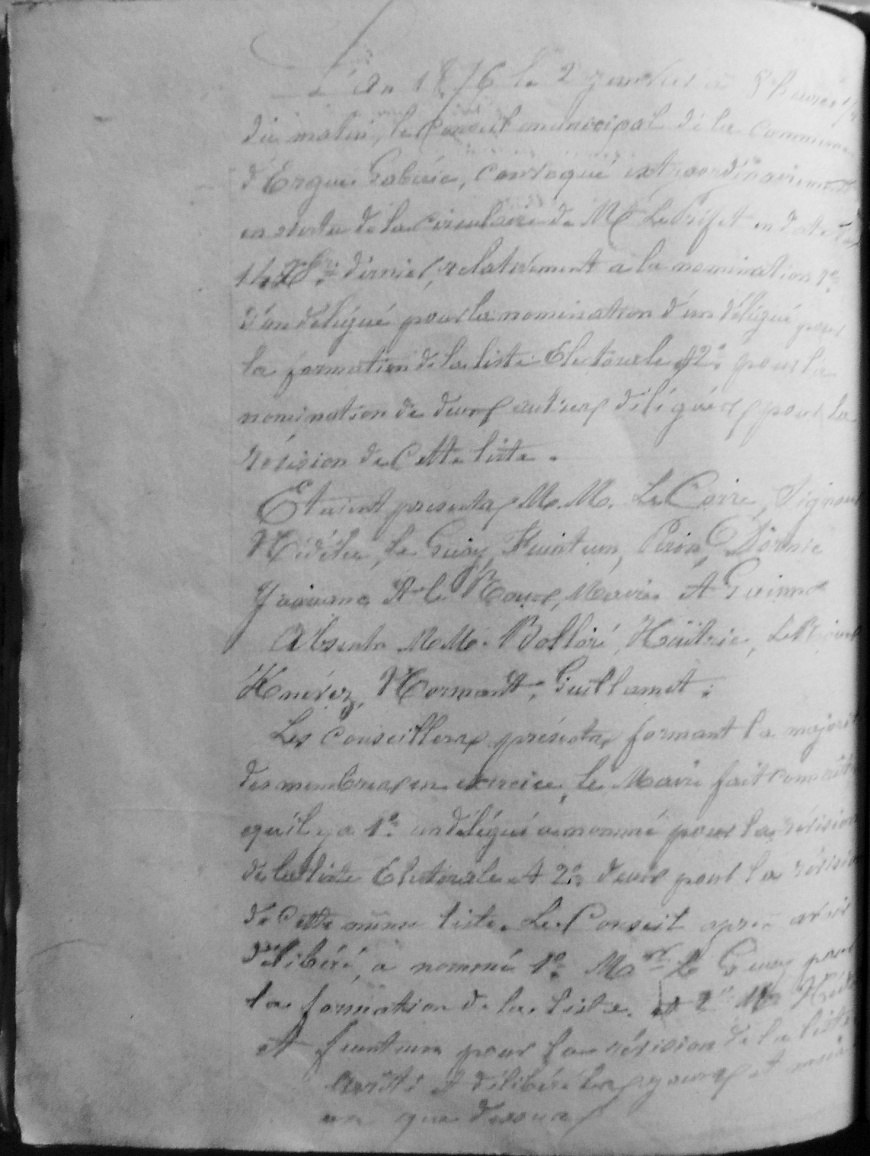 L'An 1876 le 2 Janvier à 8 heures 1/2
du matin, le Conseil municipal de la Commune
d'Ergué Gabéric, convoqué extraordinairement
en vertu de la circulaire de Mr Le Préfet en date du
14 Xbre dernier, relativement a la nomination 1º
d'un délégué pour la nomination d'un délégué pour
la formation de la liste Electorale et 2º pour la
nomination de deux autres délégués pour la
révision de cette liste.
Etaient présents M.M. Le Corre, Signour
Nédélec, le Guay, Feunteun, Piron,
A. le Roux, Maire et
Absents M.M. Bolloré,
Knévez, Normant, Guillamet.
Les Conseillers présents, formant la majorité
des membres en exercice, le Maire fait connaître
qu'il y a 1º un délégué a nommé pour la révision
de la liste Electorale et 2º deux pour la révision
de cette même liste. Le Conseil après avoir
délibéré, a nommé 1º Mr le Guay pour
la formation de la liste. et 2º
et feunteun pour la révision de la liste
arrêté et délibéré les jours et mois
an que dessus